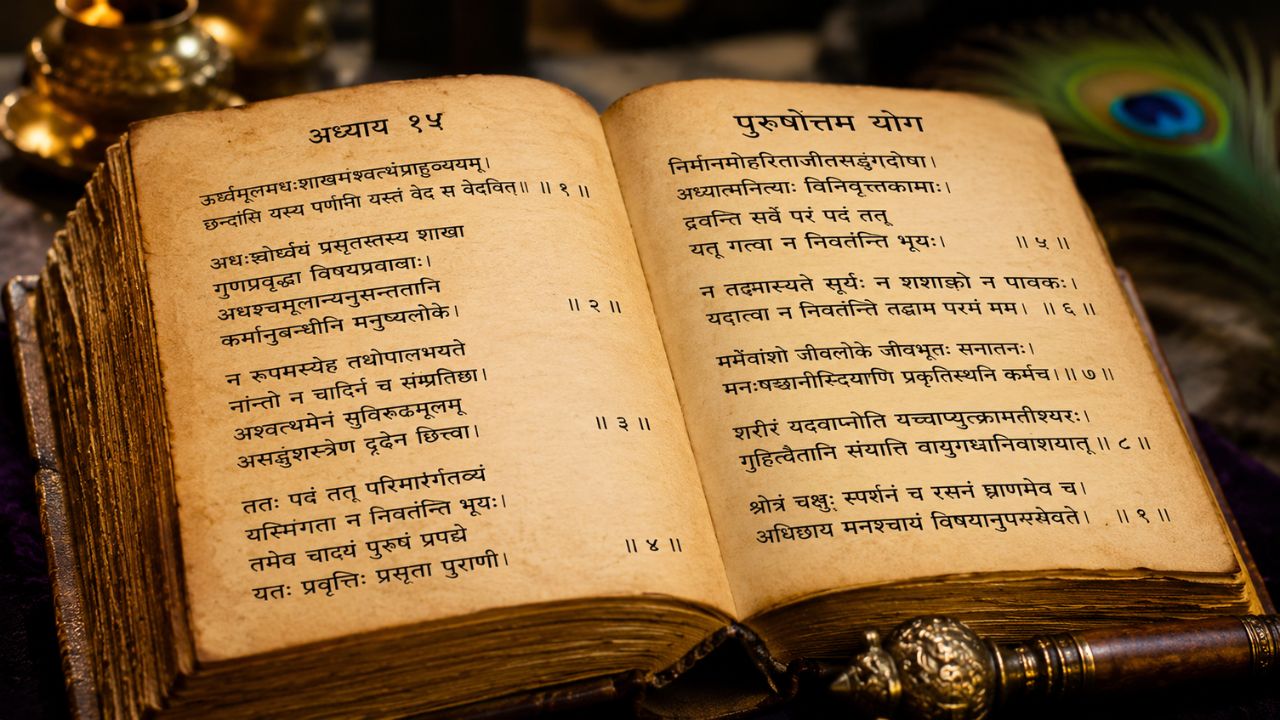 अध्याय १५
ऊर्ध्वमूलमधःशाखमंश्वत्थंप्राहुव्ययमू।
छन्दांसि यस्य पर्णानी यस्तं वेद स वेदवित्॥ ॥ १ ॥
अधःश्चोर्ध्वयं प्रसृतस्तस्य शाखा
गुणप्रवृद्धा विषयप्रवावाः।
अधश्चमूलान्यनुसन्ततानि
कर्मानुबन्धीनि मनुष्यलोके। ॥ २ ॥
न रूपमस्येह तधोपालभयते
नांन्तो न चादिर्न च संम्प्रतिछा।
अश्वत्थमेनं सुविरुढमूलमू
असङ्गुंशस्त्रेण दृढेन छित्त्वा। ॥ ३ ॥
ततः पदं ततू परिमार्र्गतव्यं
यस्मिंगता न निवतंन्ति भूयः।
तमेव चादयं पुरुषं प्रपद्ये
यतः प्रवृत्तिः प्रसृता पुराणी। ॥ ४ ॥
पुरुषोंत्तम योग
निर्मानमोहरिताजीतसङुंगदोषा।
अध्यात्मनित्याः विनिवृत्तकामाः।
द्रवन्ति सर्वे परं पदं ततू
यतू गत्वा न निवतंन्ति भूयः। ॥ ५ ॥
न तदमास्यते सूर्यः न शशाक़ो न पावकः।
यदात्वा न निवतंन्ति तद्वाम परमं मम। ॥ ६ ॥
ममेंवांशो जीवलोके जीवभूतः सनातनः।
मनःषच्छानीस्दियाणि प्रकृतिस्थनि कर्मच।॥ ७ ॥
शरीरं यदवाप्नोति यच्चाप्युत्क्रामतीश्यरः।
गुहित्वैतानि संयात्ति वायुगधानिवाशयातू ॥ ८ ॥
श्रोत्रं चक्षुः स्पर्शनं च रसनं घ्राणमेव च।
अधिछाय मनश्चायं ॥ १ ॥